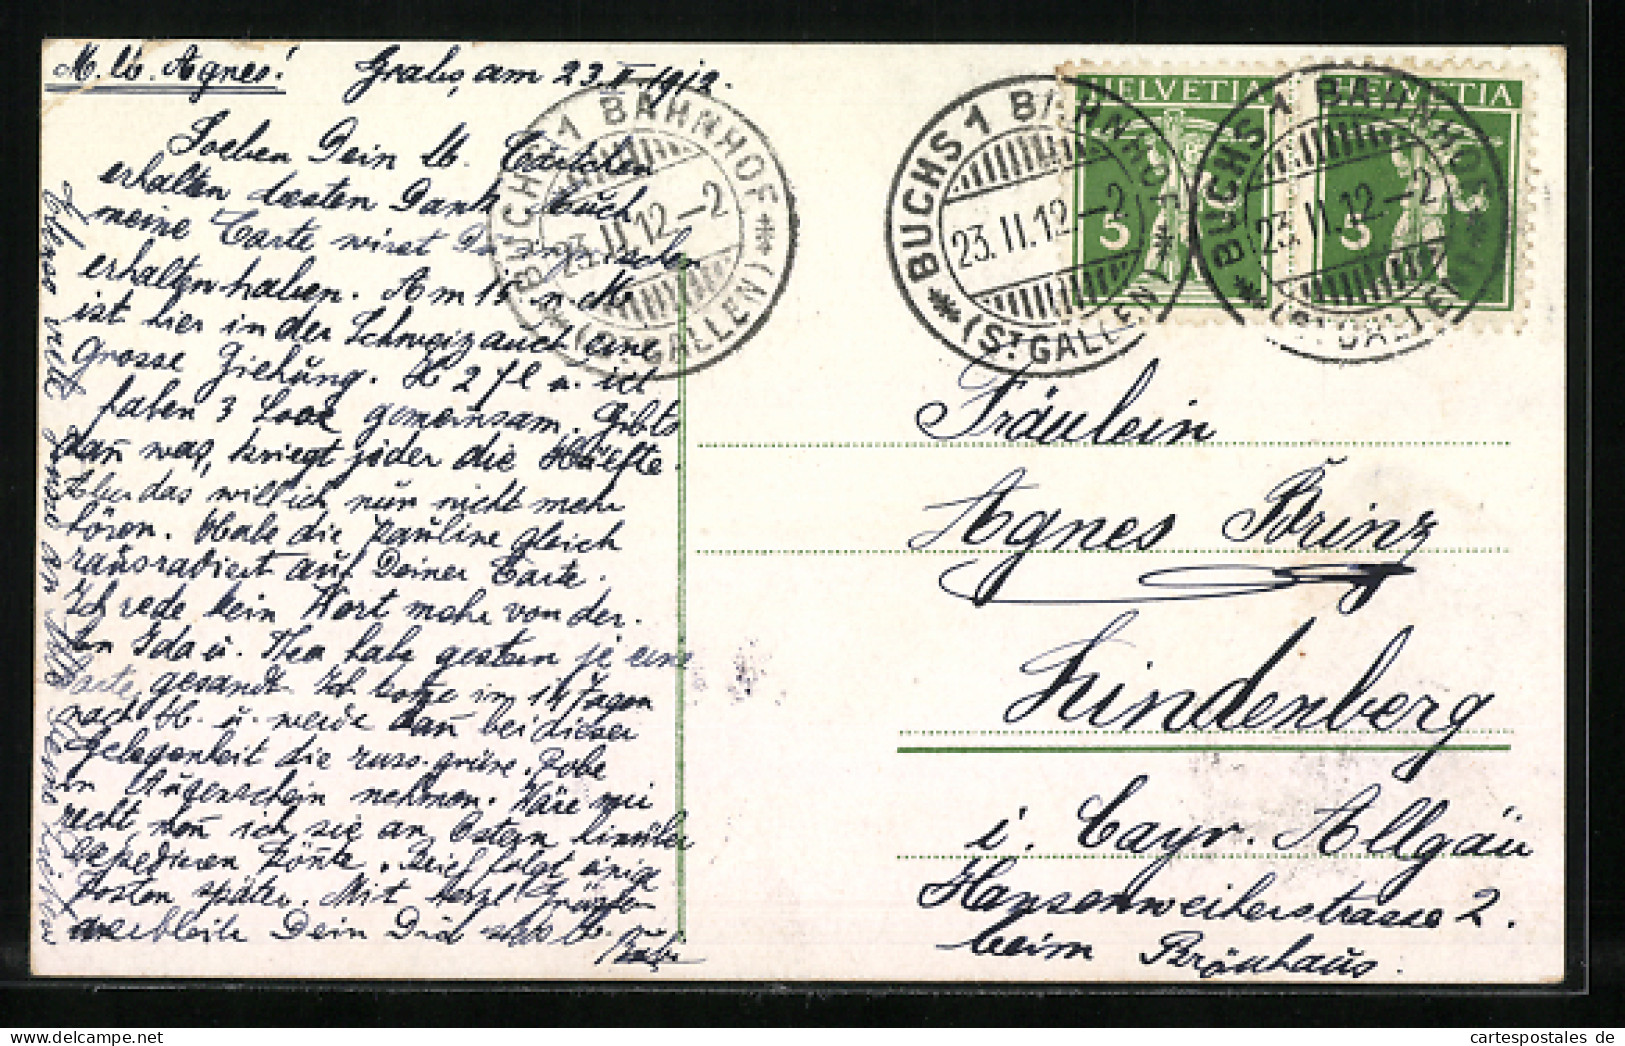 M. lb. Agnes! Grabs, am 23. II. 1912.
Soeben Dein lb.
erhalten besten Dank. Auch
meine Carte wirst Du inzwischen
erhalten haben. Am 15. n. Mts
ist hier in der Schweiz auch eine
grosse Ziehung. u. ich
haben 3 Lose gemeinsam. Gibts
dañ was, kriegt jeder die Hälfte.
Aber das will ich nun nicht mehr
hören. Habe die Pauline gleich
rausradiert auf Deiner Carte.
Ich rede kein Wort mehr von der.
Ida u. habe gestern je eine
gesandt. Ich im 14 Tagen
nach u. werde dañ bei dieser
Gelegenheit die russ. grüne Robe
in Augenschein nehmen. Wäre mir
recht, weñ ich sie an Ostern
expedieren köñte. Brief folgt einige
Posten später. Mit herzl. Grüssen
verbleibe Dein Dich lb.
BUCHS 1 BAHNHOF
23. II. 12 – 2
(ST. GALLEN)
BUCHS 1 BAHNHOF
23. II. 12 – 2
(ST. GALLEN)
BUCHS 1 BAHNHOF
23. II. 12 – 2
(ST. GALLEN)
HELVETIA
3
HELVETIA
3
Fräulein
Agnes Prinz
Lindenberg
i. bayr. Allgäu
Hansenweiherstrasse 2.
beim Bräuhaus.
cartespostales de